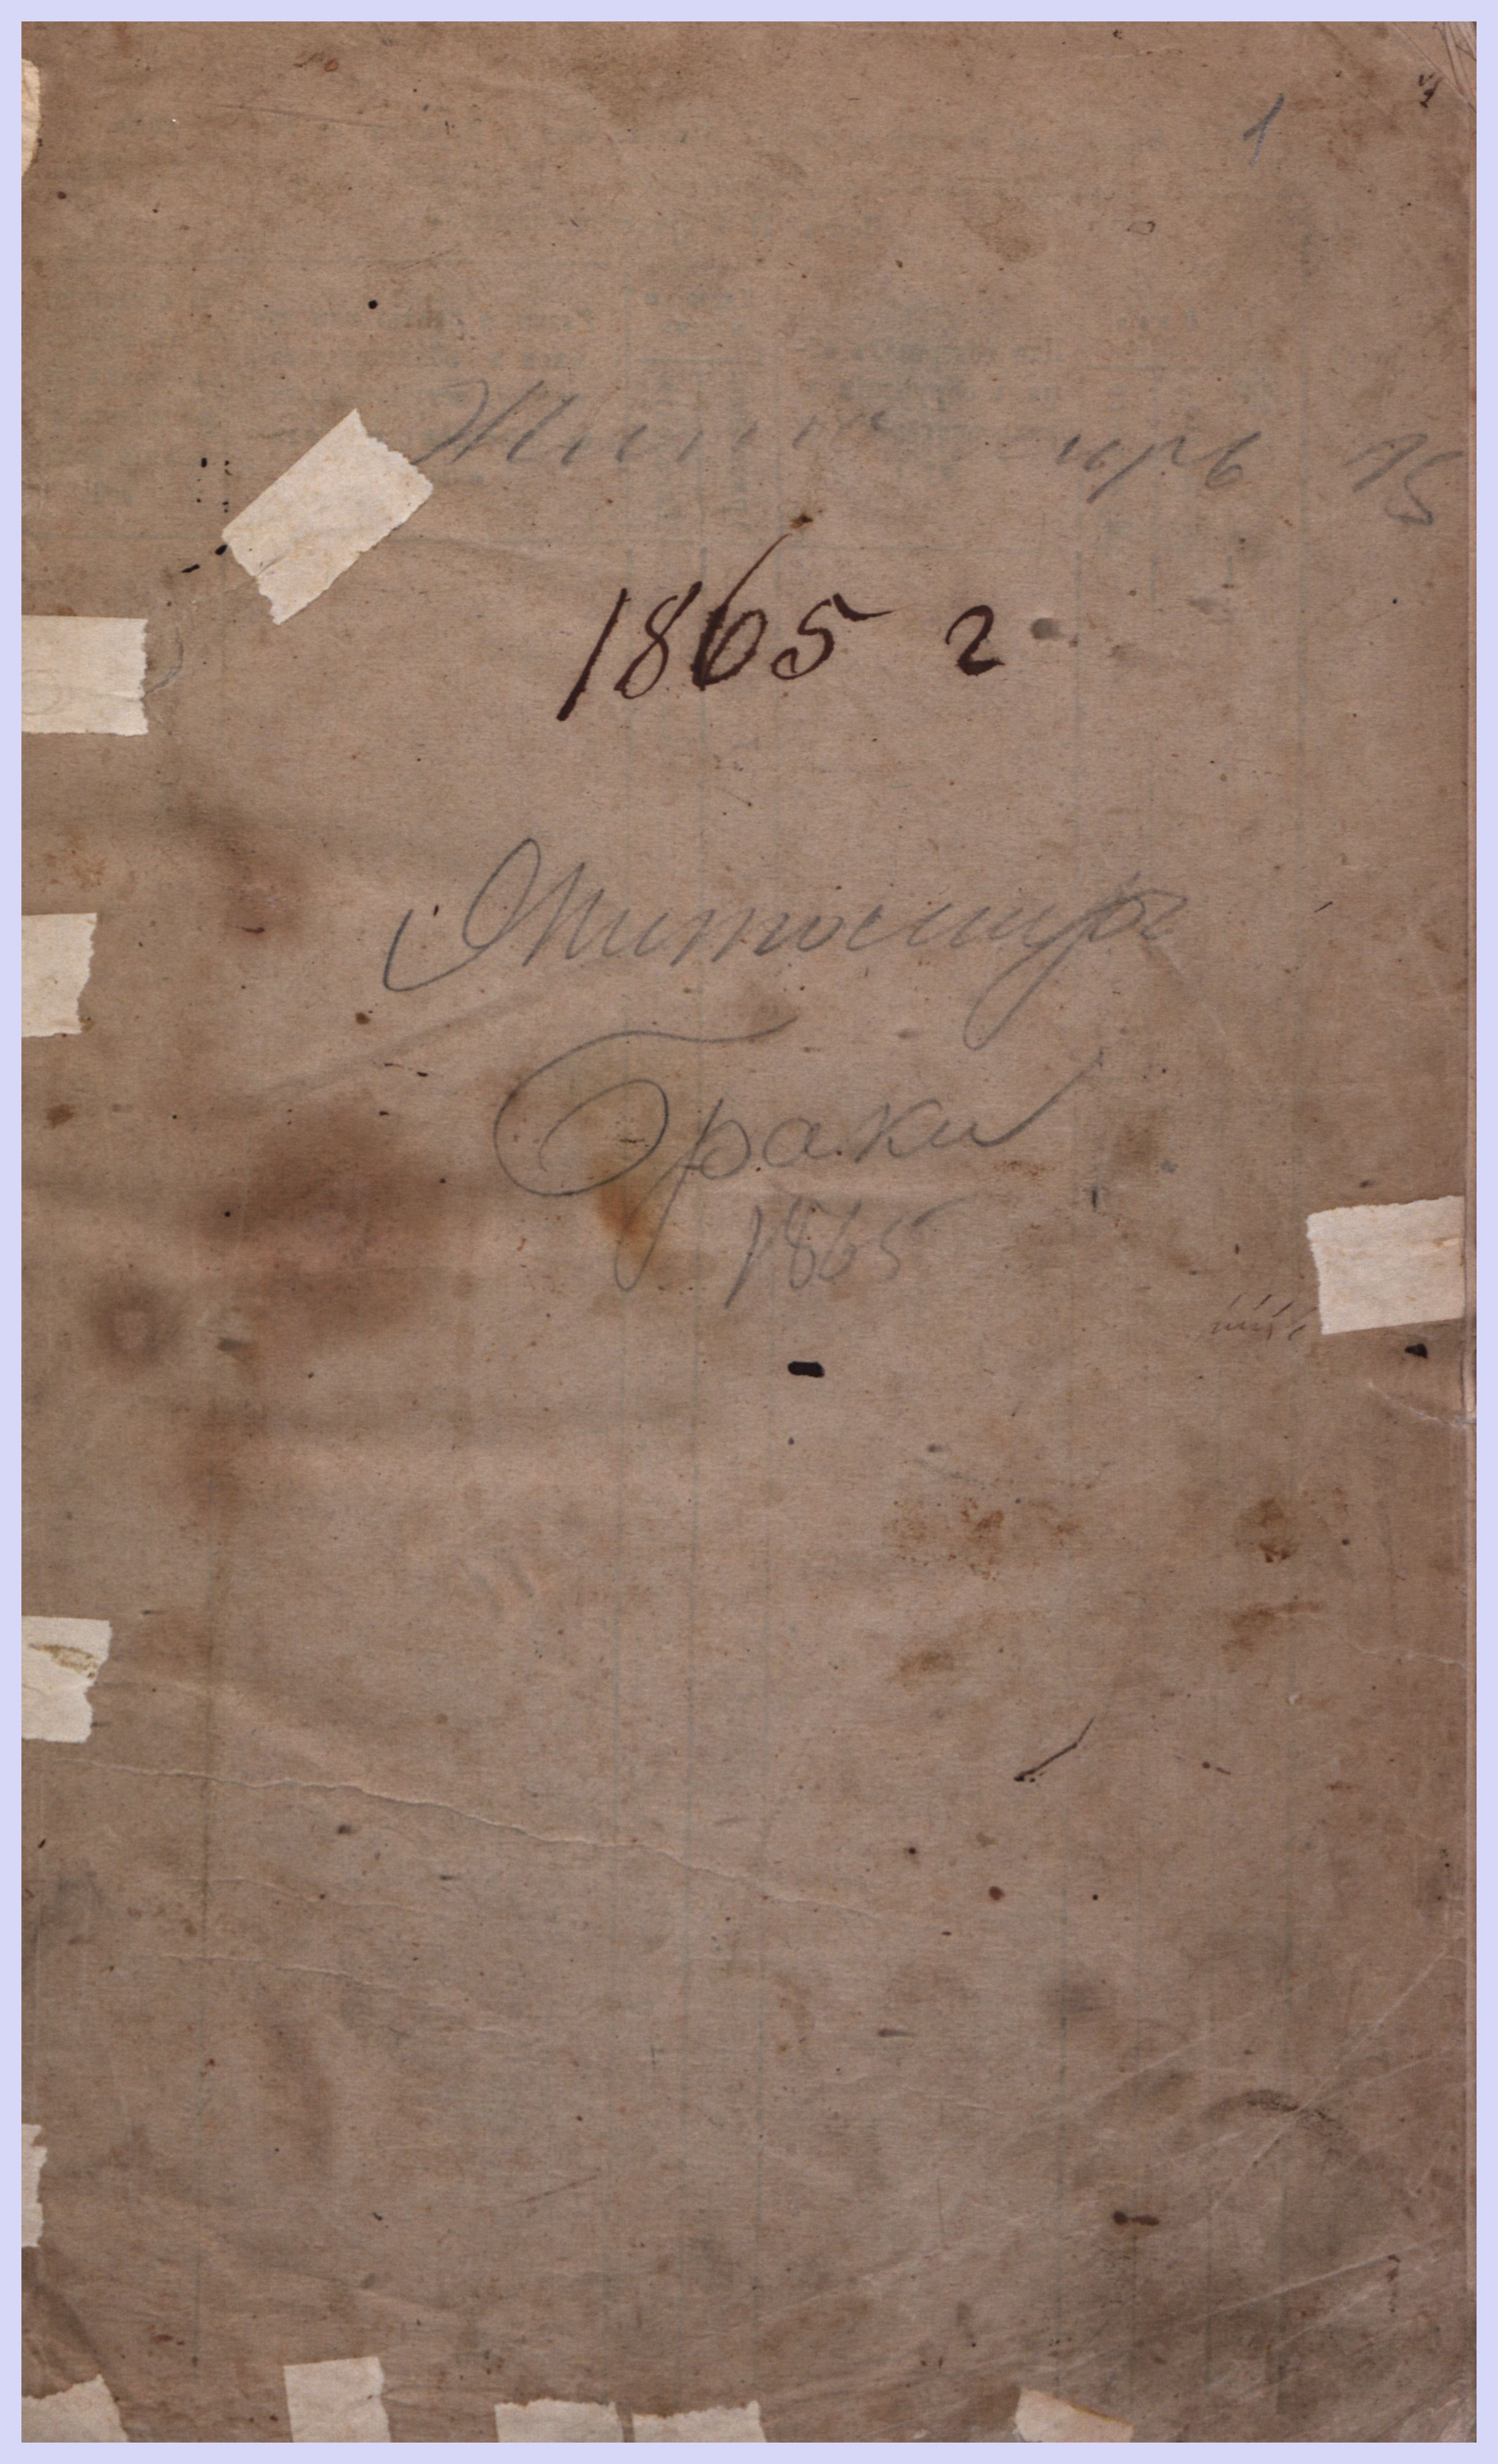 1
Житомирь 15
1865 г
Житомиръ
Браки
1865